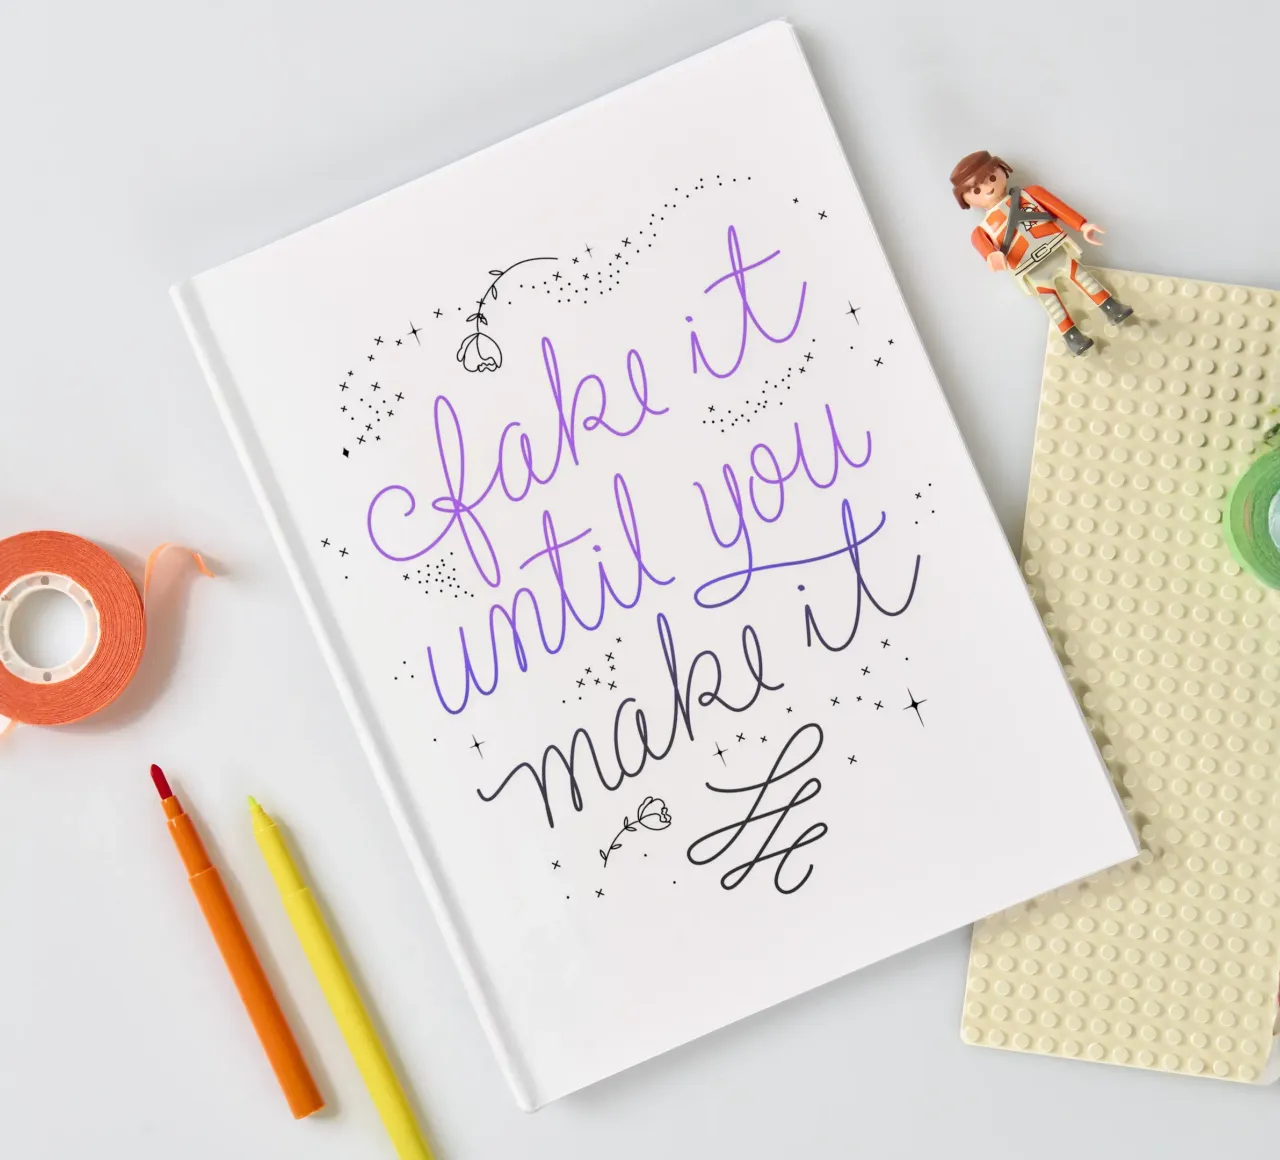 fake it
until you
make it